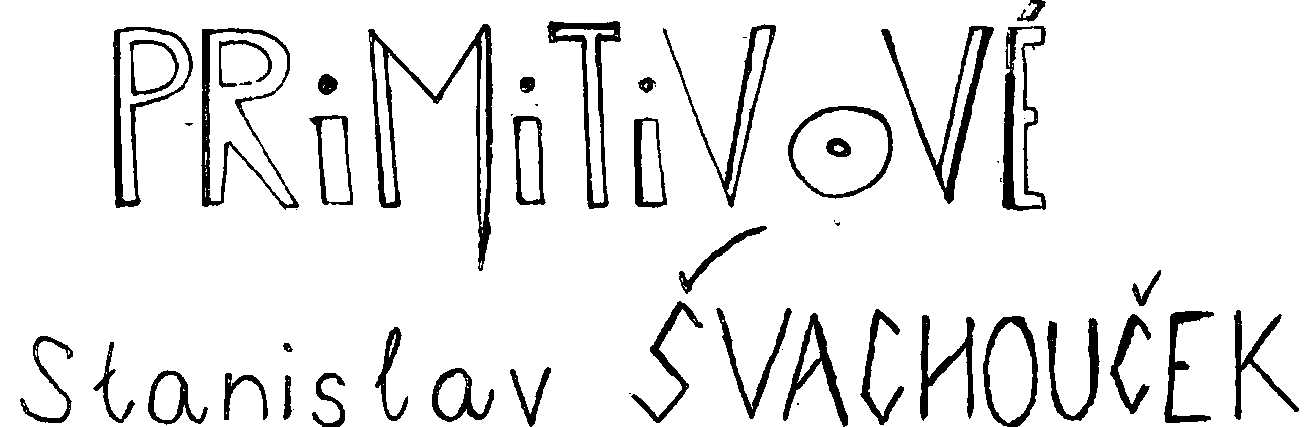 PRiMiTiVOVÉ
Stanislav ŠVACHOUČEK